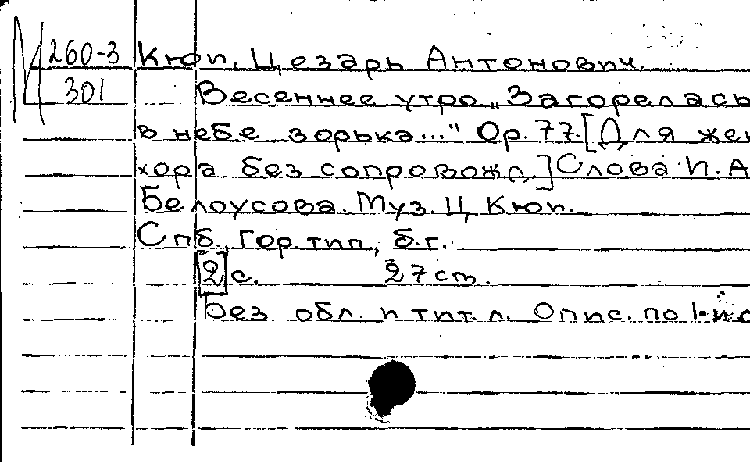 М 260-3 Кюи, Цезарь Антонович.
301 Весеннее утро „Загорелась
в небе зорька..." Ор. 77. [Для жен
хора без сопровожд.] Слова И. А.
Белоусова. Муз. Ц. Кюи.
Спб., Гор. тип., б.г.
[2] с. 27 cm.
Без обл. и тит. л. Опис. по 1-й с